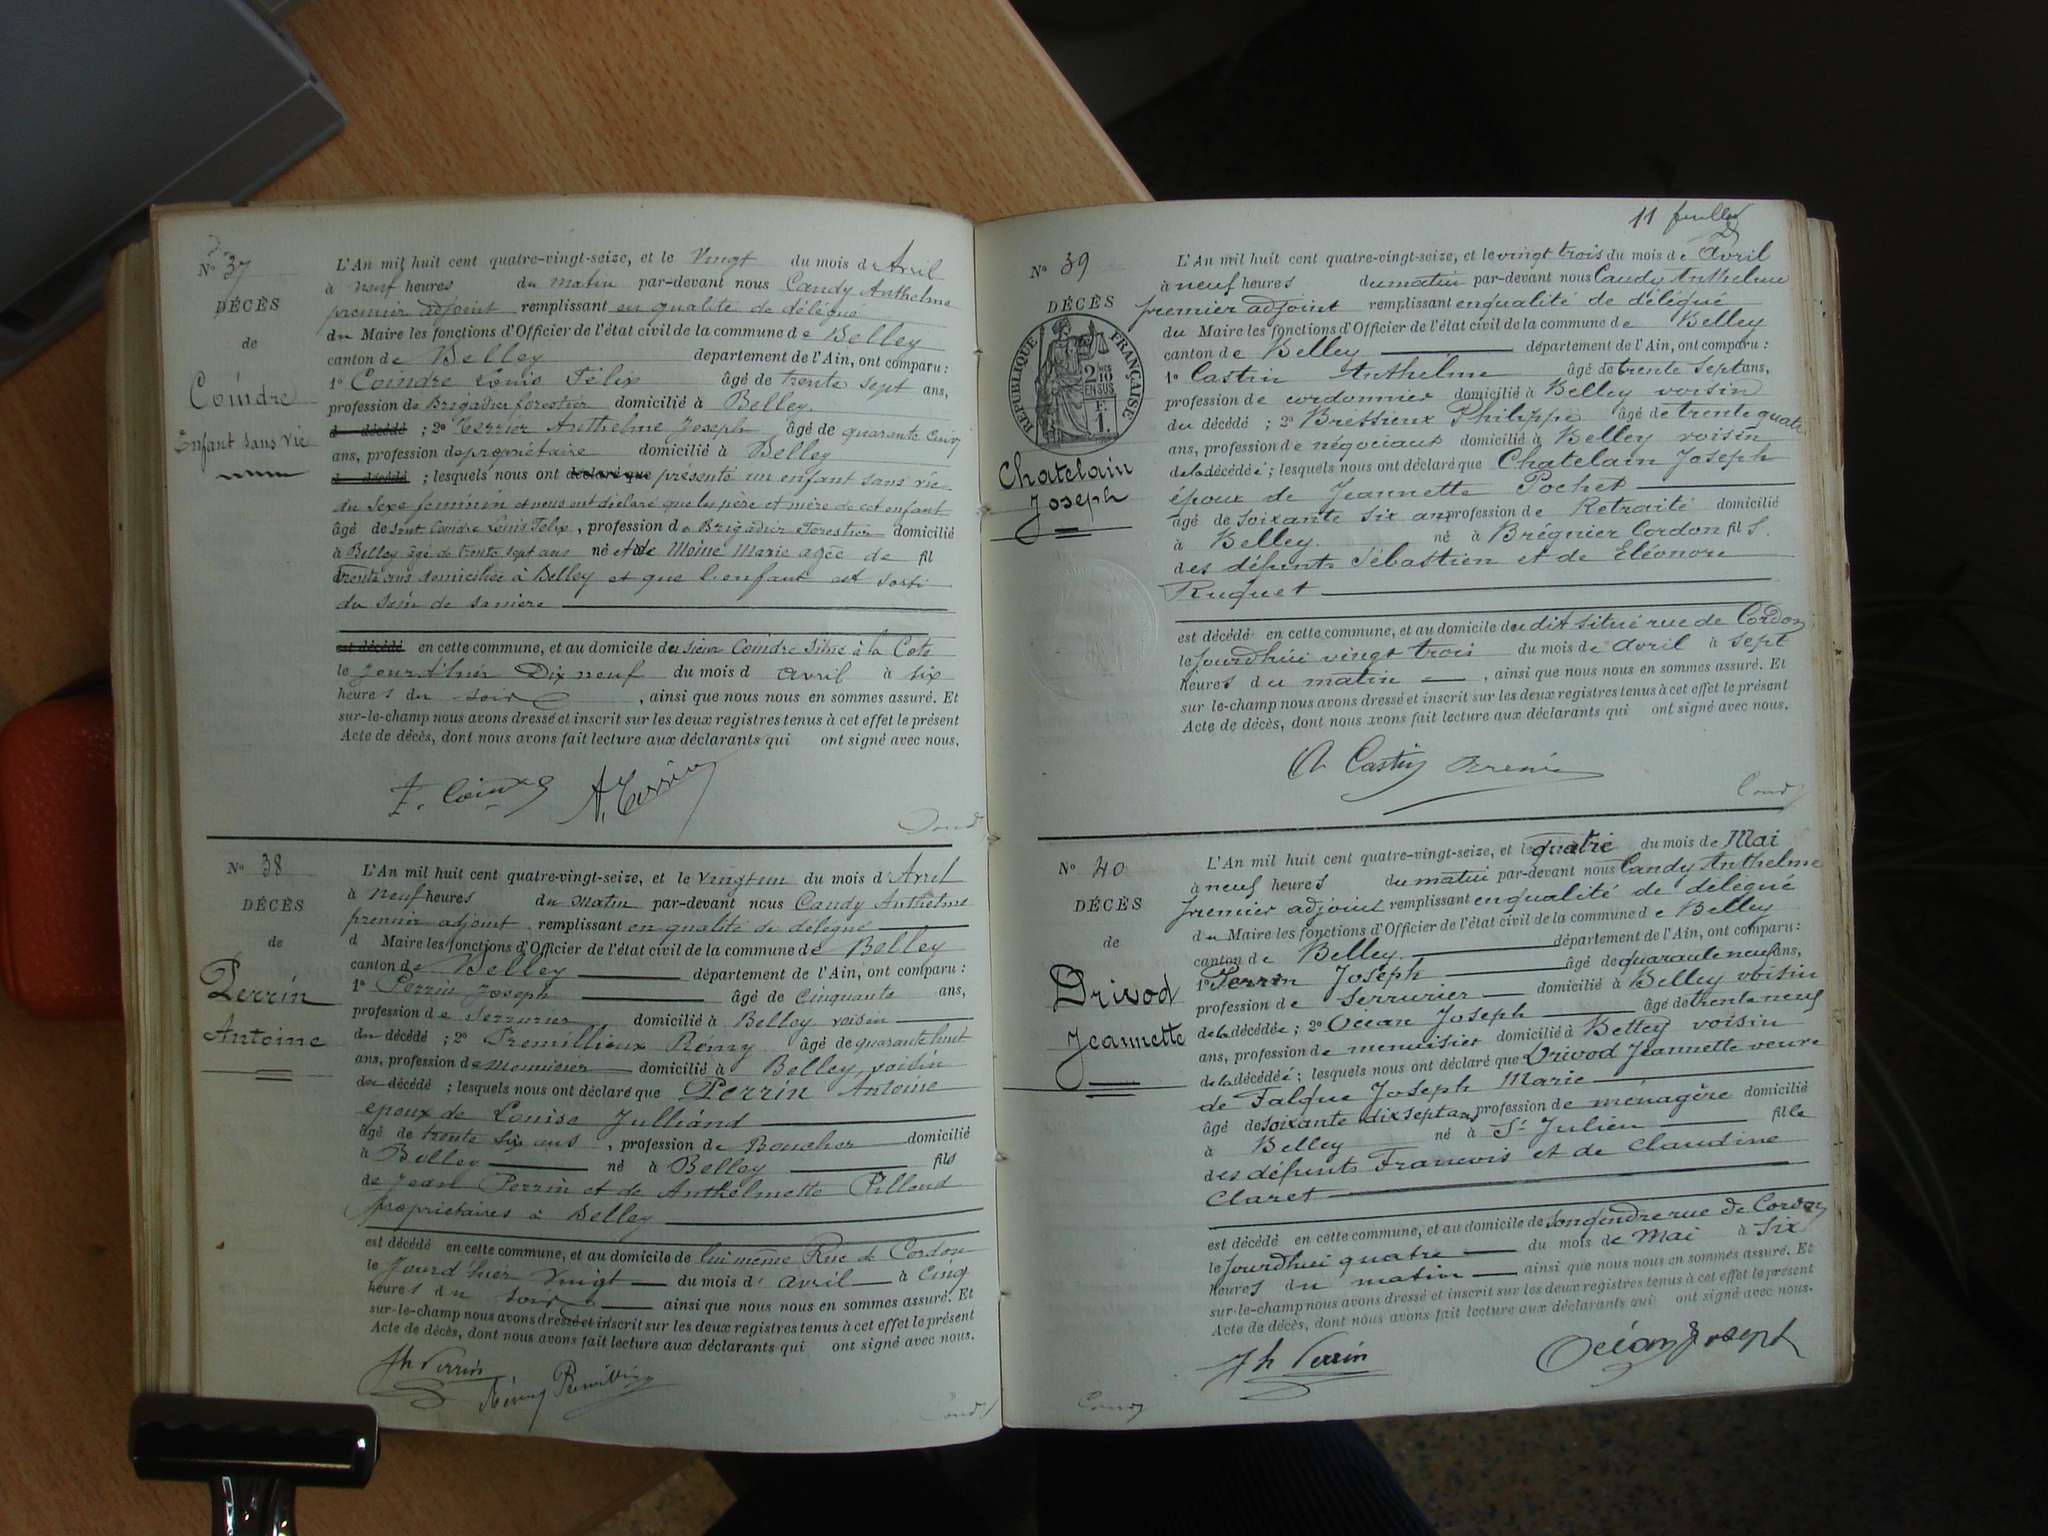 N° 37
DÉCÈS
de
Coindre
Enfant sans vie
L'An mil huit cent quatre-vingt-seize, et le Vingt du mois d'Avril
à neuf heures du matin par-devant nous Candy Anthelme
premier adjoint remplissant en qualité de délégué
du Maire les fonctions d'Officier de l'état civil de la commune de Belley
canton de Belley département de l'Ain, ont comparu :
1° Coindre Louis Félix âgé de trente sept ans,
profession de Brigadier forestier domicilié à Belley.
d décédé ; 2° Terrier Anthelme Joseph âgé de quarante cinq
ans, profession de propriétaire domicilié à Belley
d décédé ; lesquels nous ont déclaré que présenté un enfant sans vie
du sexe féminin et nous ont déclaré que les père et mère de cet enfant
âgé de sont Coindre Louis Félix, profession de Brigadier Forestier domicilié
à Belley âgé de trente sept ans né et de Moine Marie agée de fil
trente ans domiciliée à Belley et que l'enfant est sorti
du sein de sa mère
est décédé en cette commune, et au domicile du sieur Coindre situé à la Cote
le jour d'hier Dix neuf du mois d avril à six
heures du soir , ainsi que nous nous en sommes assuré. Et
sur-le-champ nous avons dressé et inscrit sur les deux registres tenus à cet effet le présent
Acte de décès, dont nous avons fait lecture aux déclarants qui ont signé avec nous.
Candy
N° 38
DÉCÈS
de
Perrin
Antoine
L'An mil huit cent quatre-vingt-seize, et le vingt un du mois d'Avril
à neuf heures du matin par-devant nous Candy Anthelme
premier adjoint remplissant en qualité de délégué
d Maire les fonctions d'Officier de l'état civil de la commune de Belley
canton de Belley département de l'Ain, ont comparu :
1° Perrin Joseph âgé de cinquante ans,
profession de Serrurier domicilié à Belley voisin
du décédé ; 2° Premillieux Rémy âgé de quarante huit
ans, profession de domicilié à Belley, voisin
du décédé ; lesquels nous ont déclaré que Perrin Antoine
époux de Louise Julliand
âgé de trente six ans , profession de Boucher domicilié
à Belley né à Belley fils
de Jean Perrin et de Anthelmette Pilloud
propriétaires à Belley
est décédé en cette commune, et au domicile de lui même Rue de Cordon
le jour d'hier vingt du mois d'avril à cinq
heures du soir ainsi que nous nous en sommes assuré. Et
sur-le-champ nous avons dressé et inscrit sur les deux registres tenus à cet effet le présent
Acte de décès, dont nous avons fait lecture aux déclarants qui ont signé avec nous.
Jh Perrin
Candy
11
N° 39
DÉCÈS
RÉPUBLIQUE FRANÇAISE
2/10 EN SUS
F. 1.
Chatelain
Joseph
L'An mil huit cent quatre-vingt-seize, et le vingt trois du mois de Avril
à neuf heures du matin par-devant nous Candy Anthelme
premier adjoint remplissant en qualité de délégué
du Maire les fonctions d'Officier de l'état civil de la commune de Belley
canton de Belley département de l'Ain, ont comparu :
1° Castin Anthelme âgé de trente sept ans,
profession de cordonnier domicilié à Belley voisin
du décédé ; 2° Bressieux Philippe âgé de trente quatre
ans, profession de négociant domicilié à Belley voisin
de la décédée ; lesquels nous ont déclaré que Chatelain Joseph
époux de Jeannette Pochet
âgé de soixante six ans profession de Retraité domicilié
à Belley. né à Brégnier Cordon fil s.
des défunts Sébastien et de Eléonore
Ruguet
est décédé en cette commune, et au domicile du dit situé rue de Cordon
le jourdhui vingt trois du mois de avril à sept
heures du matin , ainsi que nous nous en sommes assuré. Et
sur le-champ nous avons dressé et inscrit sur les deux registres tenus à cet effet le présent
Acte de décès, dont nous avons fait lecture aux déclarants qui ont signé avec nous.
A Castin
Candy
N° 40
DÉCÈS
de
Drivod
Jeannette
L'An mil huit cent quatre-vingt-seize, et le quatre du mois de Mai
à neuf heures du matin par-devant nous Candy Anthelme
premier adjoint remplissant en qualité de délégué
du Maire les fonctions d'Officier de l'état civil de la commune de Belley
canton de Belley département de l'Ain, ont comparu :
1° Perrin Joseph âgé de quarante neuf ans,
profession de serrurier domicilié à Belley voisin
de la décédée ; 2° Océan Joseph âgé de trente neuf
ans, profession de menuisier domicilié à Belley voisin
de la décédée ; lesquels nous ont déclaré que Drivod Jeannette veuve
de Falque Joseph Marie
âgé de soixante dix sept ans profession de ménagère domicilié
à Belley né à St Julien fille
des défunts Francois et de Claudine
Claret
est décédé en cette commune, et au domicile de son gendre rue de Cordon
le jourdhui quatre du mois de Mai à six
heures du matin ainsi que nous nous en sommes assuré. Et
sur-le-champ nous avons dressé et inscrit sur les deux registres tenus à cet effet le présent
Acte de décès, dont nous avons fait lecture aux déclarants qui ont signé avec nous.
Jh Perrin Océan Joseph
Candy